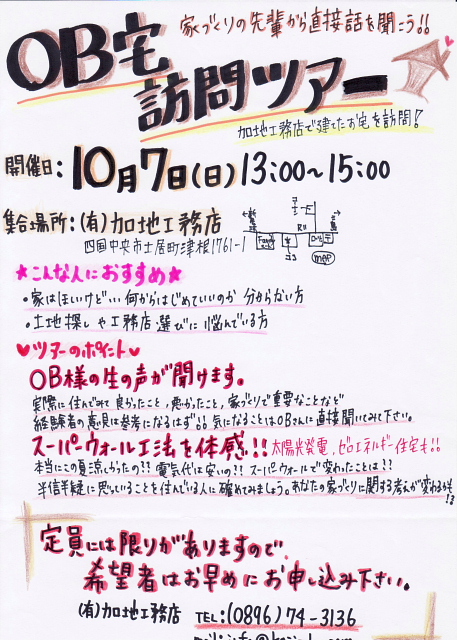 家づくりの先輩から直接話を聞こう!!
OB宅
訪問ツアー
加地工務店で建てたお宅を訪問!
開催日: 10月7日(日) 13:00~15:00
集合場所: (有)加地工務店
四国中央市土居町津根1761-1
MAP
★こんな人におすすめ★
・家はほしいけど… 何からはじめていいのか 分からない方
・土地探しや工務店選びに悩んでいる方
♥ツアーのポイント♥
OB様の生の声が聞けます。
実際に住んでみて良かったこと、悪かったこと、家づくりで重要なことなど
経験者の意見は参考になるはず!! 気になることはOBさんに直接聞いてみて下さい。
スーパーウォール工法を体感!! 太陽光発電、ゼロエネルギー住宅も!!
本当にこの夏涼しかったの?? 電気代は安いの?? スーパーウォールで変わったことは??
半信半疑に思っていることを住んでいる人に確めてみましょう。あなたの家づくりに関する考えが変わるかも!?
定員には限りがありますので、
希望者はお早めにお申し込み下さい。
(有)加地工務店 TEL:(0896)74-3136